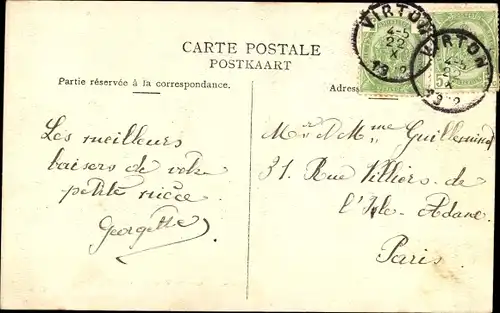 CARTE POSTALE
POSTKAART
Partie réservée à la correspondance.
Adres
VIRTON
4-5
22
X
VIRTON
4-5
22
X
Les meilleurs
baisers de votre
petite nièce
Georgette
Mr & Mme Guillemin
31. Rue Villiers-de
l'Isle-Adam
Paris.